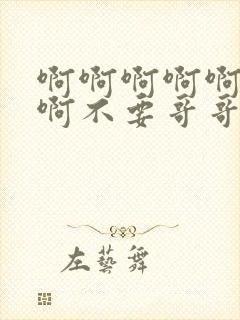 啊啊啊啊啊
啊不要哥哥
左藝舞